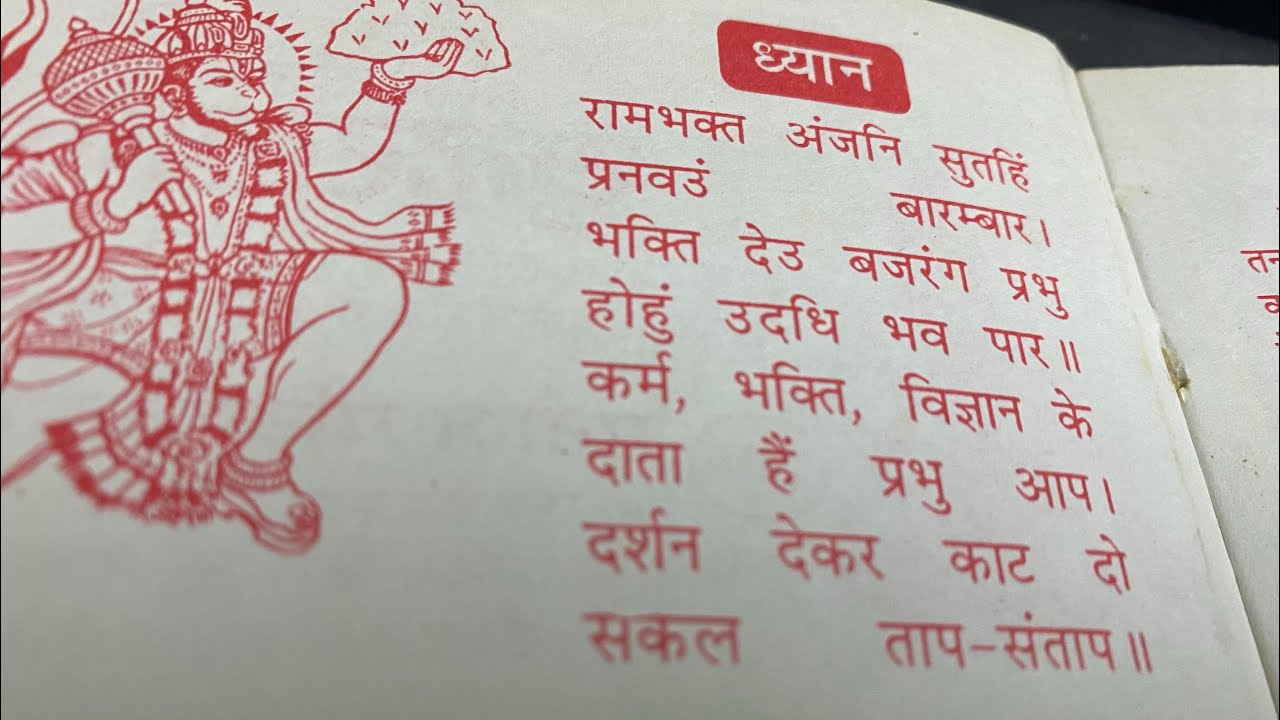 ध्यान
रामभक्त अंजनि सुतहिं
प्रनवउं बारम्बार।
भक्ति देउ बजरंग प्रभु
होहुं उदधि भव पार॥
कर्म, भक्ति, विज्ञान के
दाता हैं प्रभु आप।
दर्शन देकर काट दो
सकल ताप-संताप॥